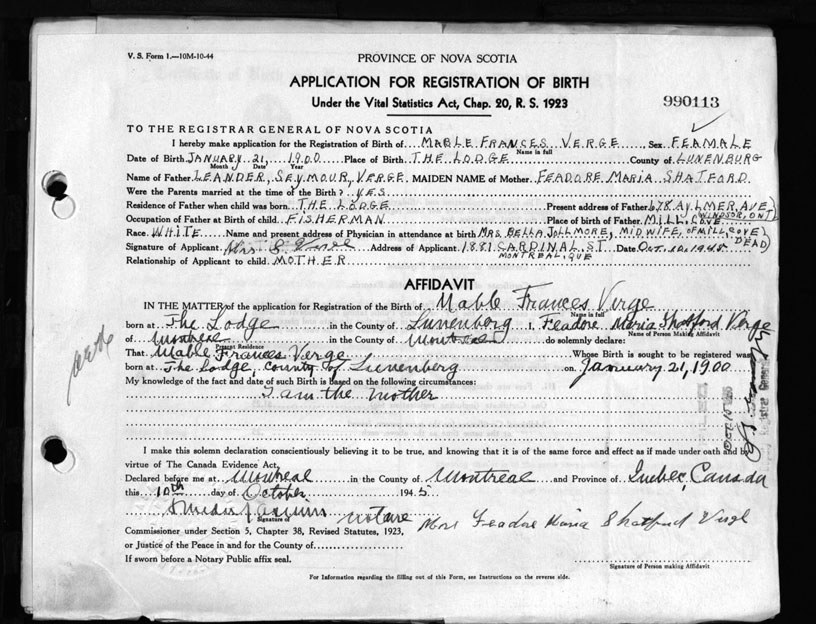 V. S. Form 1.—10M-10-44
PROVINCE OF NOVA SCOTIA
APPLICATION FOR REGISTRATION OF BIRTH
Under the Vital Statistics Act, Chap. 20, R. S. 1923
990113
TO THE REGISTRAR GENERAL OF NOVA SCOTIA
I hereby make application for the Registration of Birth of MABLE FRANCES VERGE, Sex FEAMALE
Name in full
Date of Birth JANUARY 21, 1900 Place of Birth THE LODGE County of LUNENBURG
Month Day Year
Name of Father LEANDER, SEYMOUR, VERGE MAIDEN NAME of Mother FEADORE MARIA SHATFORD
Were the Parents married at the time of the Birth? YES
Residence of Father when child was born THE LODGE Present address of Father 678 AYLMER, AVE
WINDSOR, ONT
Occupation of Father at Birth of child FISHERMAN Place of birth of Father MILL COVE
Race WHITE Name and present address of Physician in attendance at birth MRS. BELLA JOLLMORE, MIDWIFE, OF MILL COVE
DEAD)
Signature of Applicant Mrs S. Verge Address of Applicant 1881 CARDINAL, ST Date Oct. 10, 1945
MONTREAL, QUE
Relationship of Applicant to child MOTHER
AFFIDAVIT
IN THE MATTER of the application for Registration of the Birth of Mable Frances Verge
Name in full
born at The Lodge in the County of Lunenborg I, Feadore Maria Shatford Verge
Name of Person making Affidavit
of Montreal in the County of Montreal do solemnly declare:
Present Residence
That Mable Frances Verge Whose Birth is sought to be registered was
born at The Lodge, County of Lunenberg on January 21, 1900
My knowledge of the fact and date of such Birth is based on the following circumstances:
I am the mother
I make this solemn declaration conscientiously believing it to be true, and knowing that it is of the same force and effect as if made under oath and by
virtue of The Canada Evidence Act,
Declared before me at Montreal in the County of Montreal and Province of Quebec, Canada
this 10th day of October 1945
Signature of
Notare
Mrs Feadore Maria Shatford Verge
Commissioner under Section 5, Chapter 38, Revised Statutes, 1923,
or Justice of the Peace in and for the County of
If sworn before a Notary Public affix seal.
Signature of Person making Affidavit
For Information regarding the filling out of this Form, see Instructions on the reverse side.